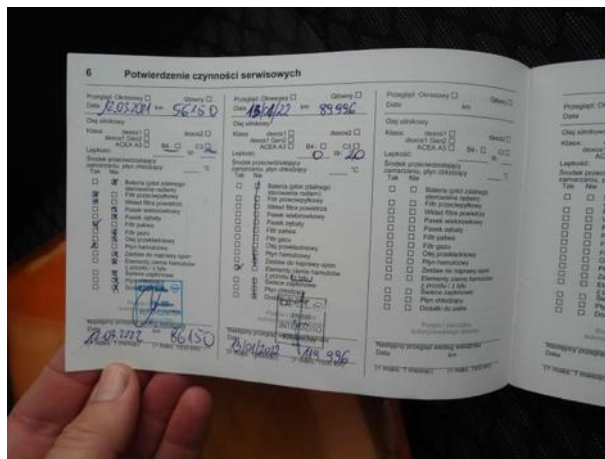 6 Potwierdzenie czynności serwisowych
Przegląd: Okresowy Główny
Data 12.03.2021 km 56150
Olej silnikowy
Klasa: dexos1 dexos2
dexos1 Gen2
ACEA A3 B4 - C3
Lepkość: W-
Środek przeciwdziałający
zamarzaniu, płyn chłodzący °C
Tak Nie
Bateria (pilot zdalnego
sterowania radiem)
Filtr przeciwpyłkowy
Wkład filtra powietrza
Pasek wielorowkowy
Pasek zębaty
Filtr paliwa
Filtr gazu
Olej przekładniowy
Płyn hamulcowy
Zestaw do naprawy opon
Elementy cierne hamulców
z przodu i z tyłu
Świece zapłonowe
Następny przegląd według wskaźnika
Data km
86150
(+ maks. 1 miesiąc)
Przegląd: Okresowy Główny
Data km 89996
Olej silnikowy
Klasa: dexos1 dexos2
dexos1 Gen2
ACEA A3 B4 - C3
Lepkość: 0 W- 20
Środek przeciwdziałający
zamarzaniu, płyn chłodzący °C
Tak Nie
Bateria (pilot zdalnego
sterowania radiem)
Filtr przeciwpyłkowy
Wkład filtra powietrza
Pasek wielorowkowy
Pasek zębaty
Filtr paliwa
Filtr gazu
Olej przekładniowy
Płyn hamulcowy
Zestaw do naprawy opon
Elementy cierne hamulców
z przodu i z tyłu
Świece zapłonowe
Płyn chłodzący
Następny przegląd według wskaźnika
119 996
(+ maks. 1 miesiąc)
Przegląd: Okresowy Główny
Data km
Olej silnikowy
Klasa: dexos1 dexos2
dexos1 Gen2
ACEA A3 B4 - C3
Lepkość: W-
Środek przeciwdziałający
zamarzaniu, płyn chłodzący °C
Tak Nie
Bateria (pilot zdalnego
sterowania radiem)
Filtr przeciwpyłkowy
Wkład filtra powietrza
Pasek wielorowkowy
Pasek zębaty
Filtr paliwa
Filtr gazu
Olej przekładniowy
Płyn hamulcowy
Zestaw do naprawy opon
Elementy cierne hamulców
z przodu i z tyłu
Świece zapłonowe
Płyn chłodzący
Dodatki do paliw
Następny przegląd według wskaźnika
Data km
(+ maks. 1 miesiąc)
Data
Olej silnikowy
Klasa:
Lepkość:
Tak Nie
Data